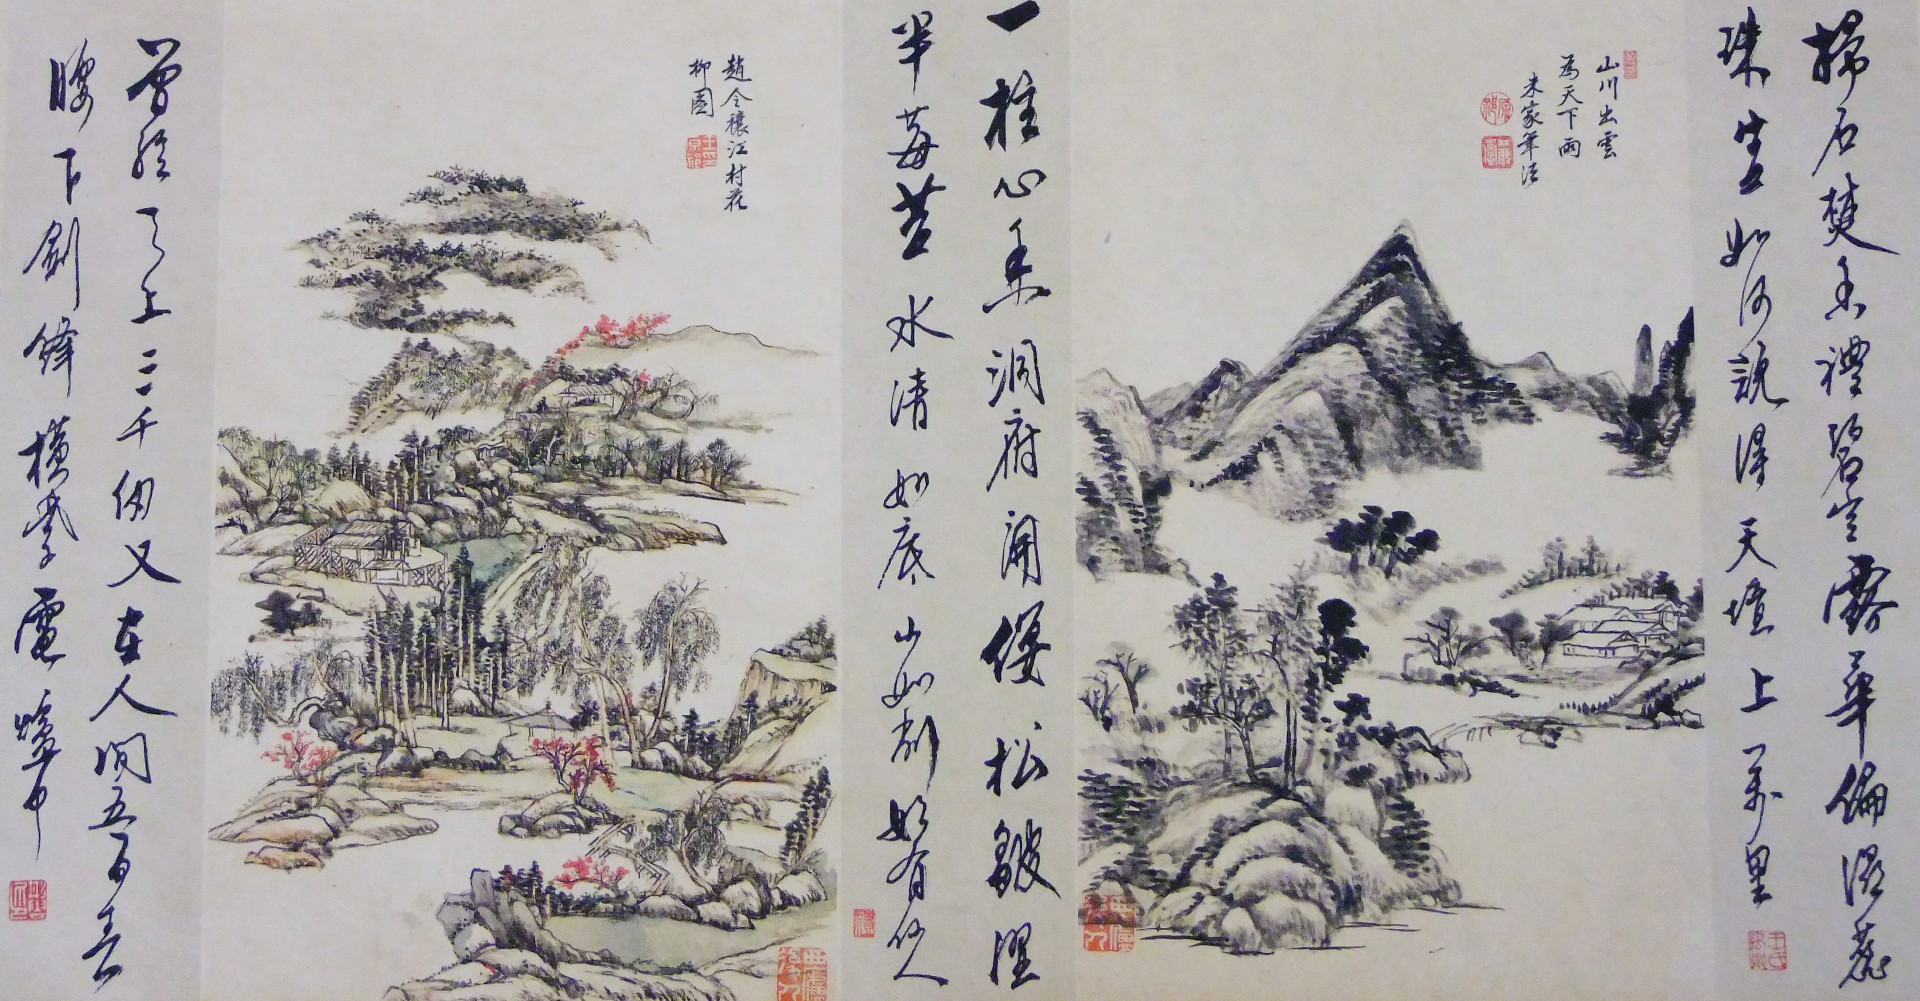 掃石焚香禮碧空露華偏濕蕊
珠宮如何說得天壇上萬里
山川出雲
為天下雨
米家筆法
一炷心香洞府開偃松皴澀
半莓苔水清如底山如削始有仙人
趙令穰江村花
柳圖
曾經天上三千劫又在人間五百年
腰下劍鋒橫紫電爐中